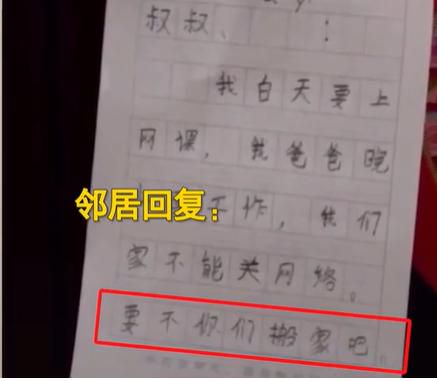 叔叔、：
我白天要上
网课，我爸爸晚
工作，我们
邻居回复：
家不能关网络。
要不你们搬家吧。